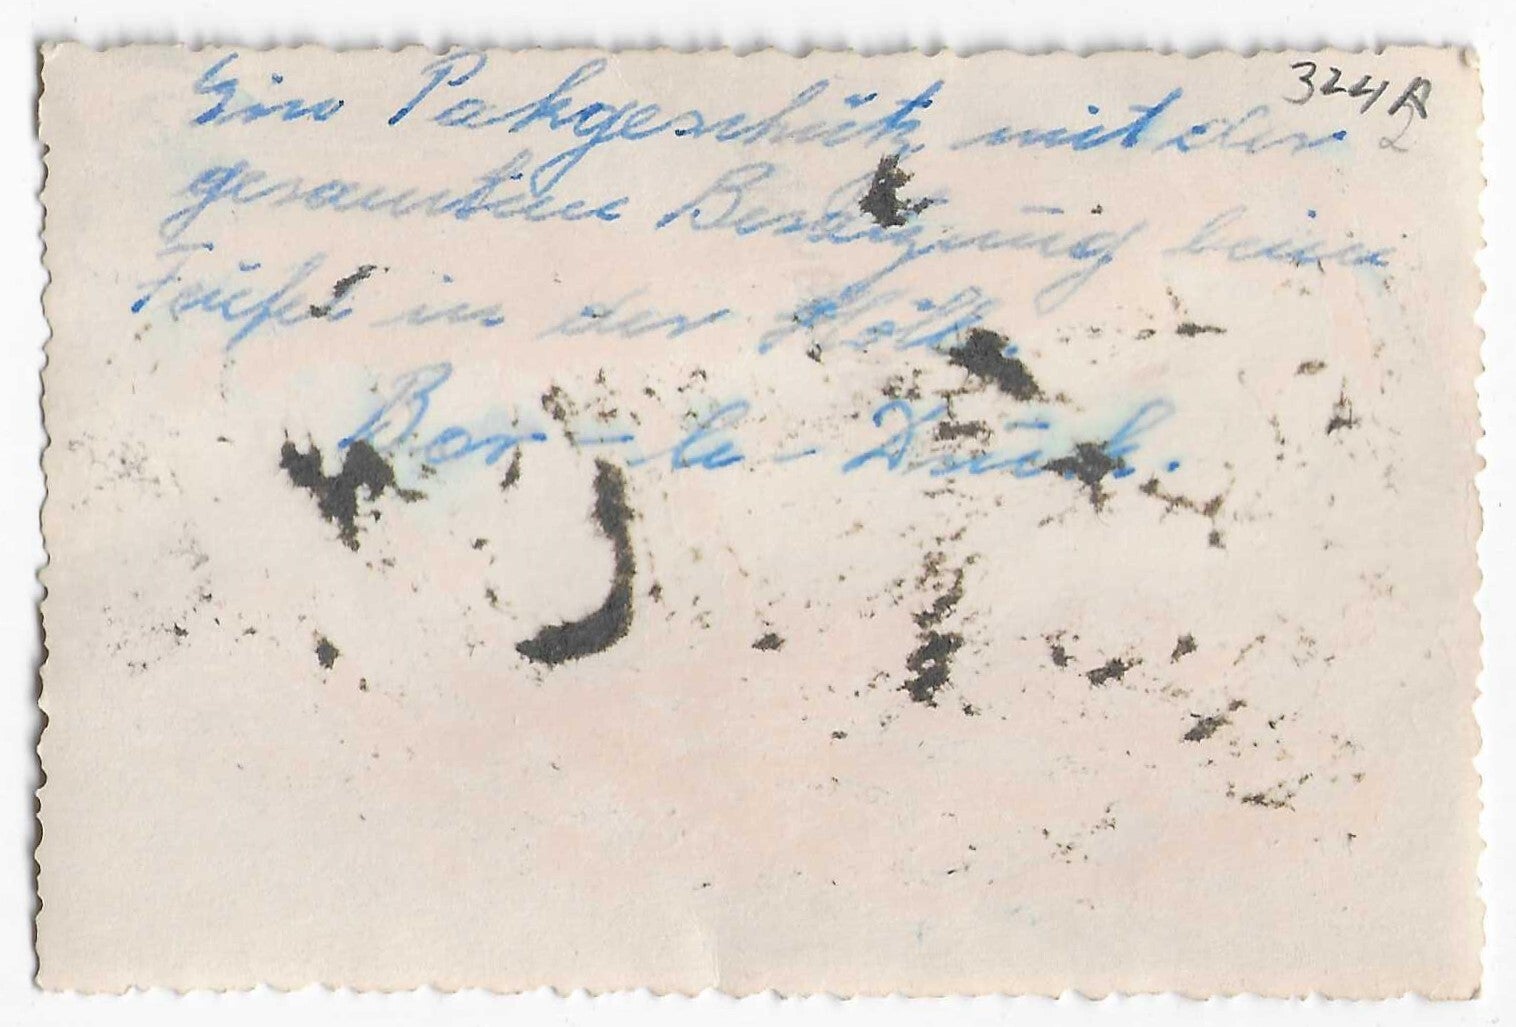 324 A
2
Ein Pakgeschütz mit der
gesamten Besatzung beim
Teufel in der Höll.
Bar-le-Duc.